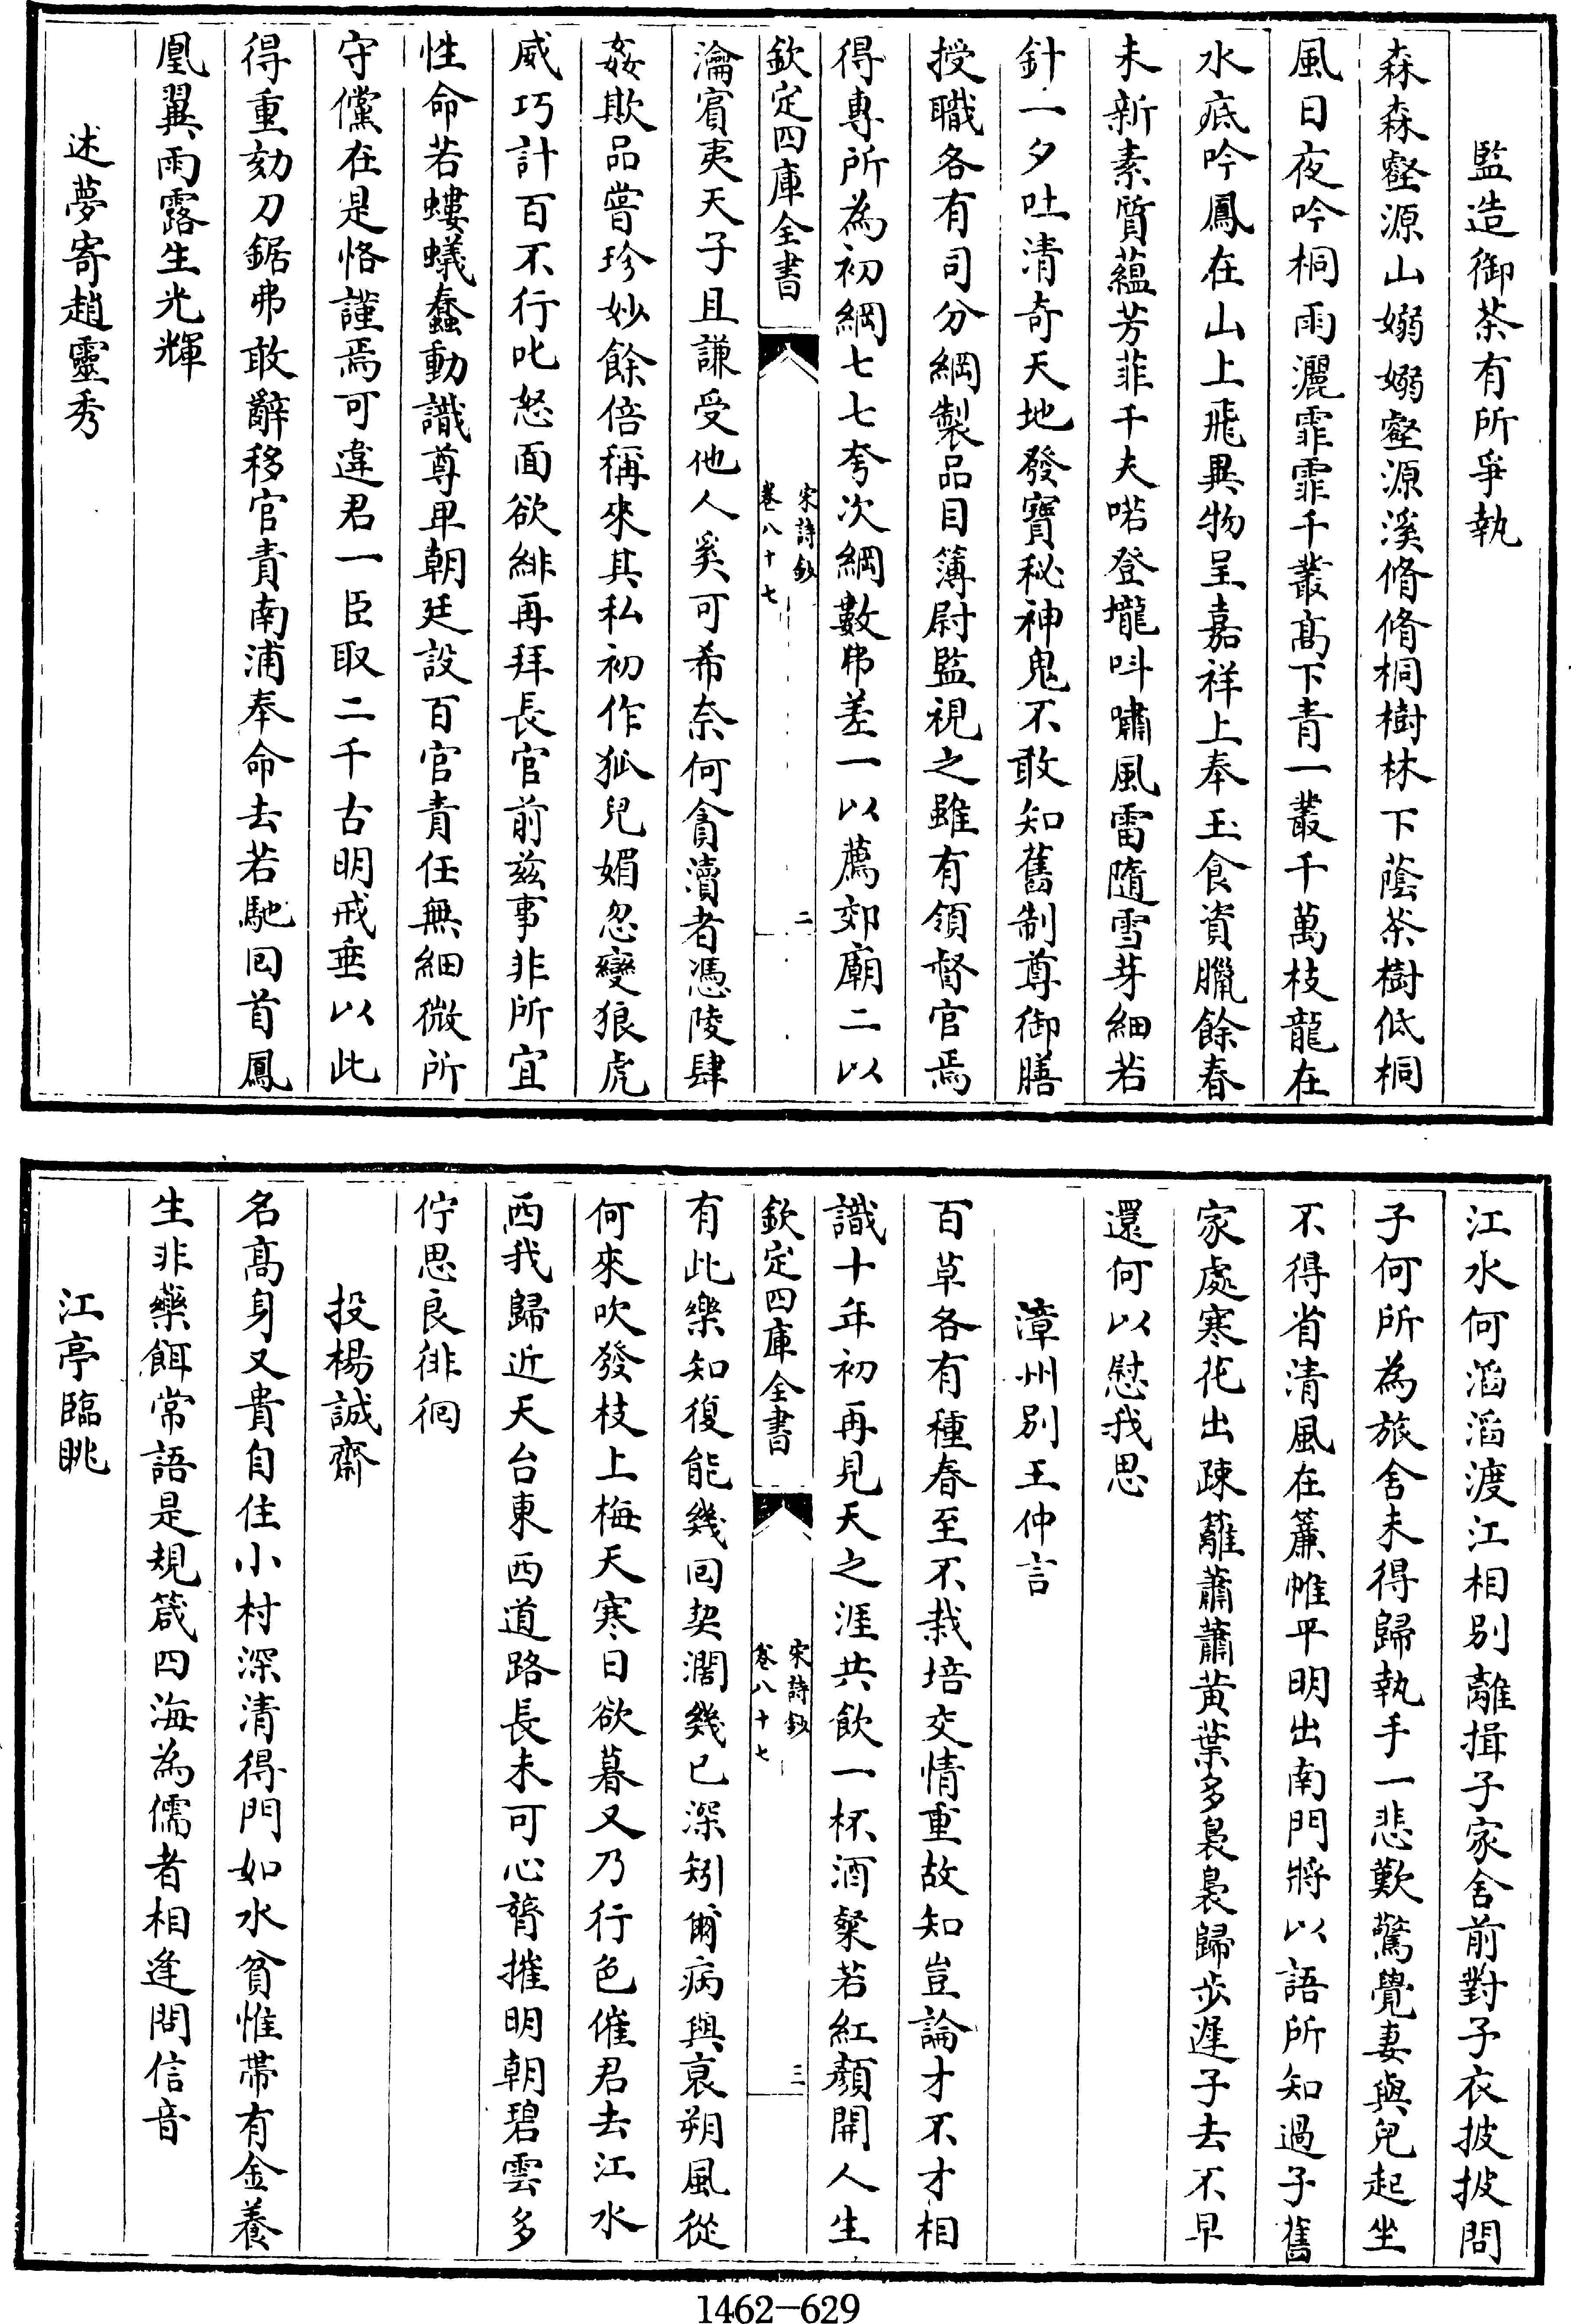 監造御茶有所爭執
森森壑源山嫋嫋壑源溪脩脩桐樹林下蔭茶樹低桐
風日夜吟桐雨灑霏霏千叢髙下青一叢千萬枝龍在
水底吟鳳在山上飛異物呈嘉祥上奉玉食資臘餘春
未新素質藴芳菲千夫喏登壠呌嘯風雷隨雪芽細若
針一夕吐清奇天地發寶秘神鬼不敢知舊制尊御膳
授職各有司分綱製品目簿尉監視之雖有領督官焉
得專所為初綱七七夸次綱數弗差一以薦郊廟二以
欽定四庫全書
宋詩鈔
卷八十七
二
瀹賔夷天子且謙受他人奚可希奈何貪瀆者憑陵肆
姦欺品嘗珍妙餘倍稱來其私初作狐兒媚忽變狼虎
威巧計百不行叱怒面欲緋再拜長官前兹事非所宜
性命若螻蟻蠢動識尊卑朝廷設百官責任無細微所
守儻在是恪謹焉可違君一臣取二千古明戒垂以此
得重劾刀鋸弗敢辭移官責南浦奉命去若馳囘首鳳
凰翼雨露生光輝
述夢寄趙靈秀
江水何滔滔渡江相别離揖子家舍前對子衣披披問
子何所為旅舍未得歸執手一悲歎驚覺妻與兒起坐
不得省清風在簾帷平明出南門將以語所知過子舊
家處寒花出疎籬蕭蕭黄葉多裊裊歸步遲子去不早
還何以慰我思
漳州别王仲言
百草各有種春至不栽培交情重故知豈論才不才相
識十年初再見天之涯共飲一杯酒粲若紅顔開人生
欽定四庫全書
宋詩鈔
卷八十七
三
有此樂知復能幾囘契濶幾已深矧爾病與衰朔風從
何來吹發枝上梅天寒日欲暮又乃行色催君去江水
西我歸近天台東西道路長未可心膂摧明朝碧雲多
佇思良徘徊
投楊誠齋
名髙身又貴自住小村深清得門如水貧惟帶有金養
生非藥餌常語是規箴四海為儒者相逢問信音
江亭臨眺
1462—629